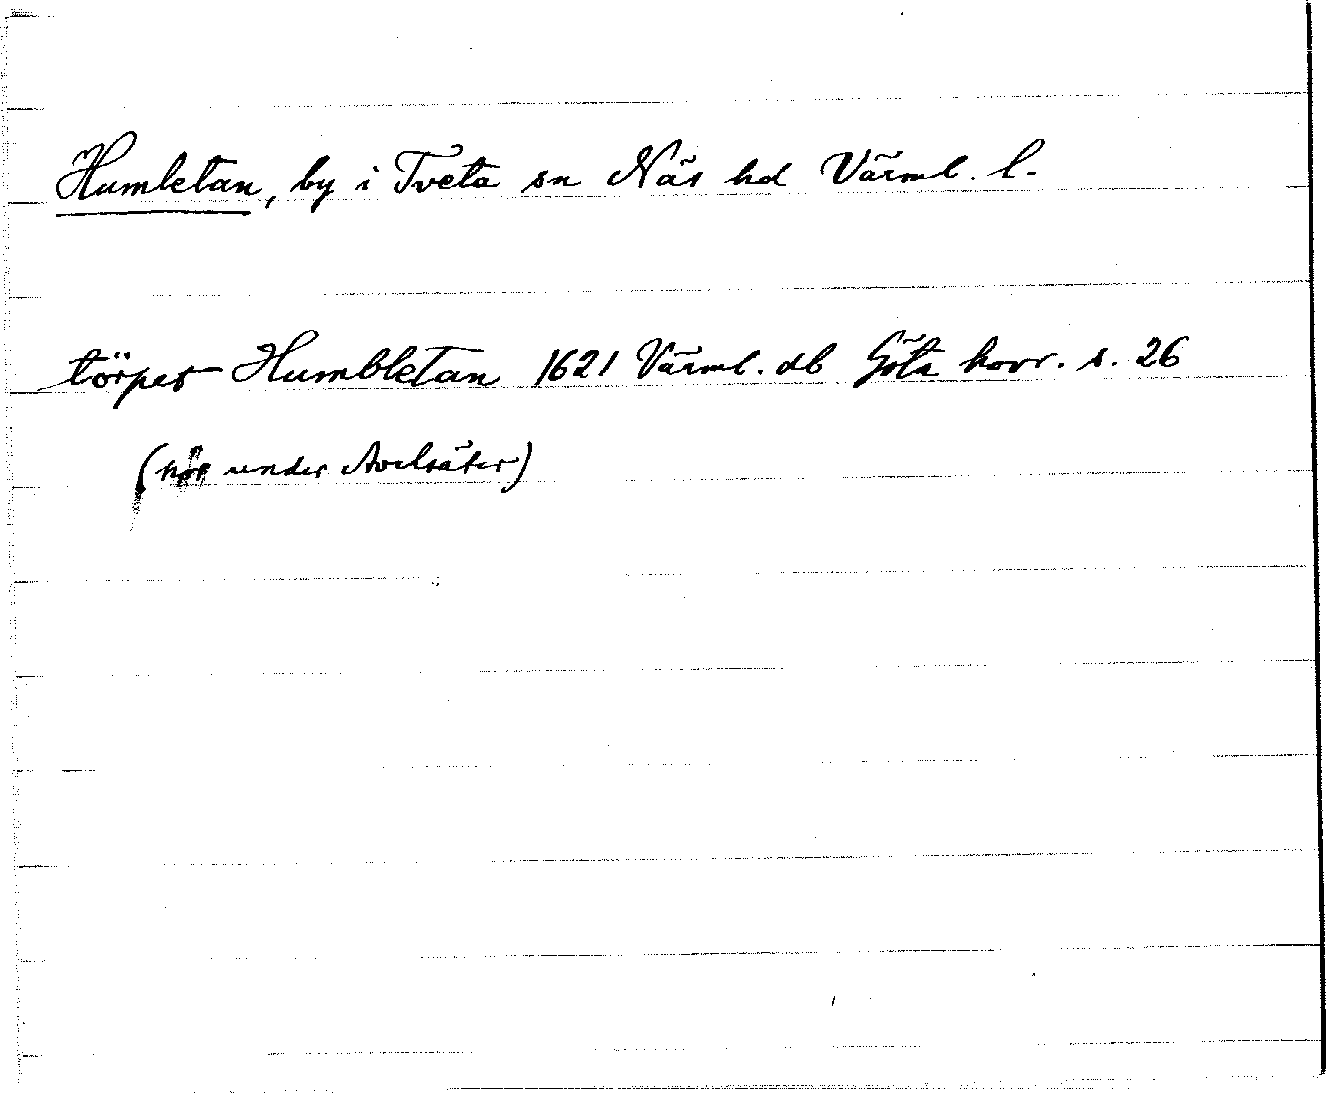 Humletan, by i Tveta sn Näs hd Värml. l.
törpet Humbletan 1621 Värml. db Göta hovr. s. 26
( under Avelsäter)